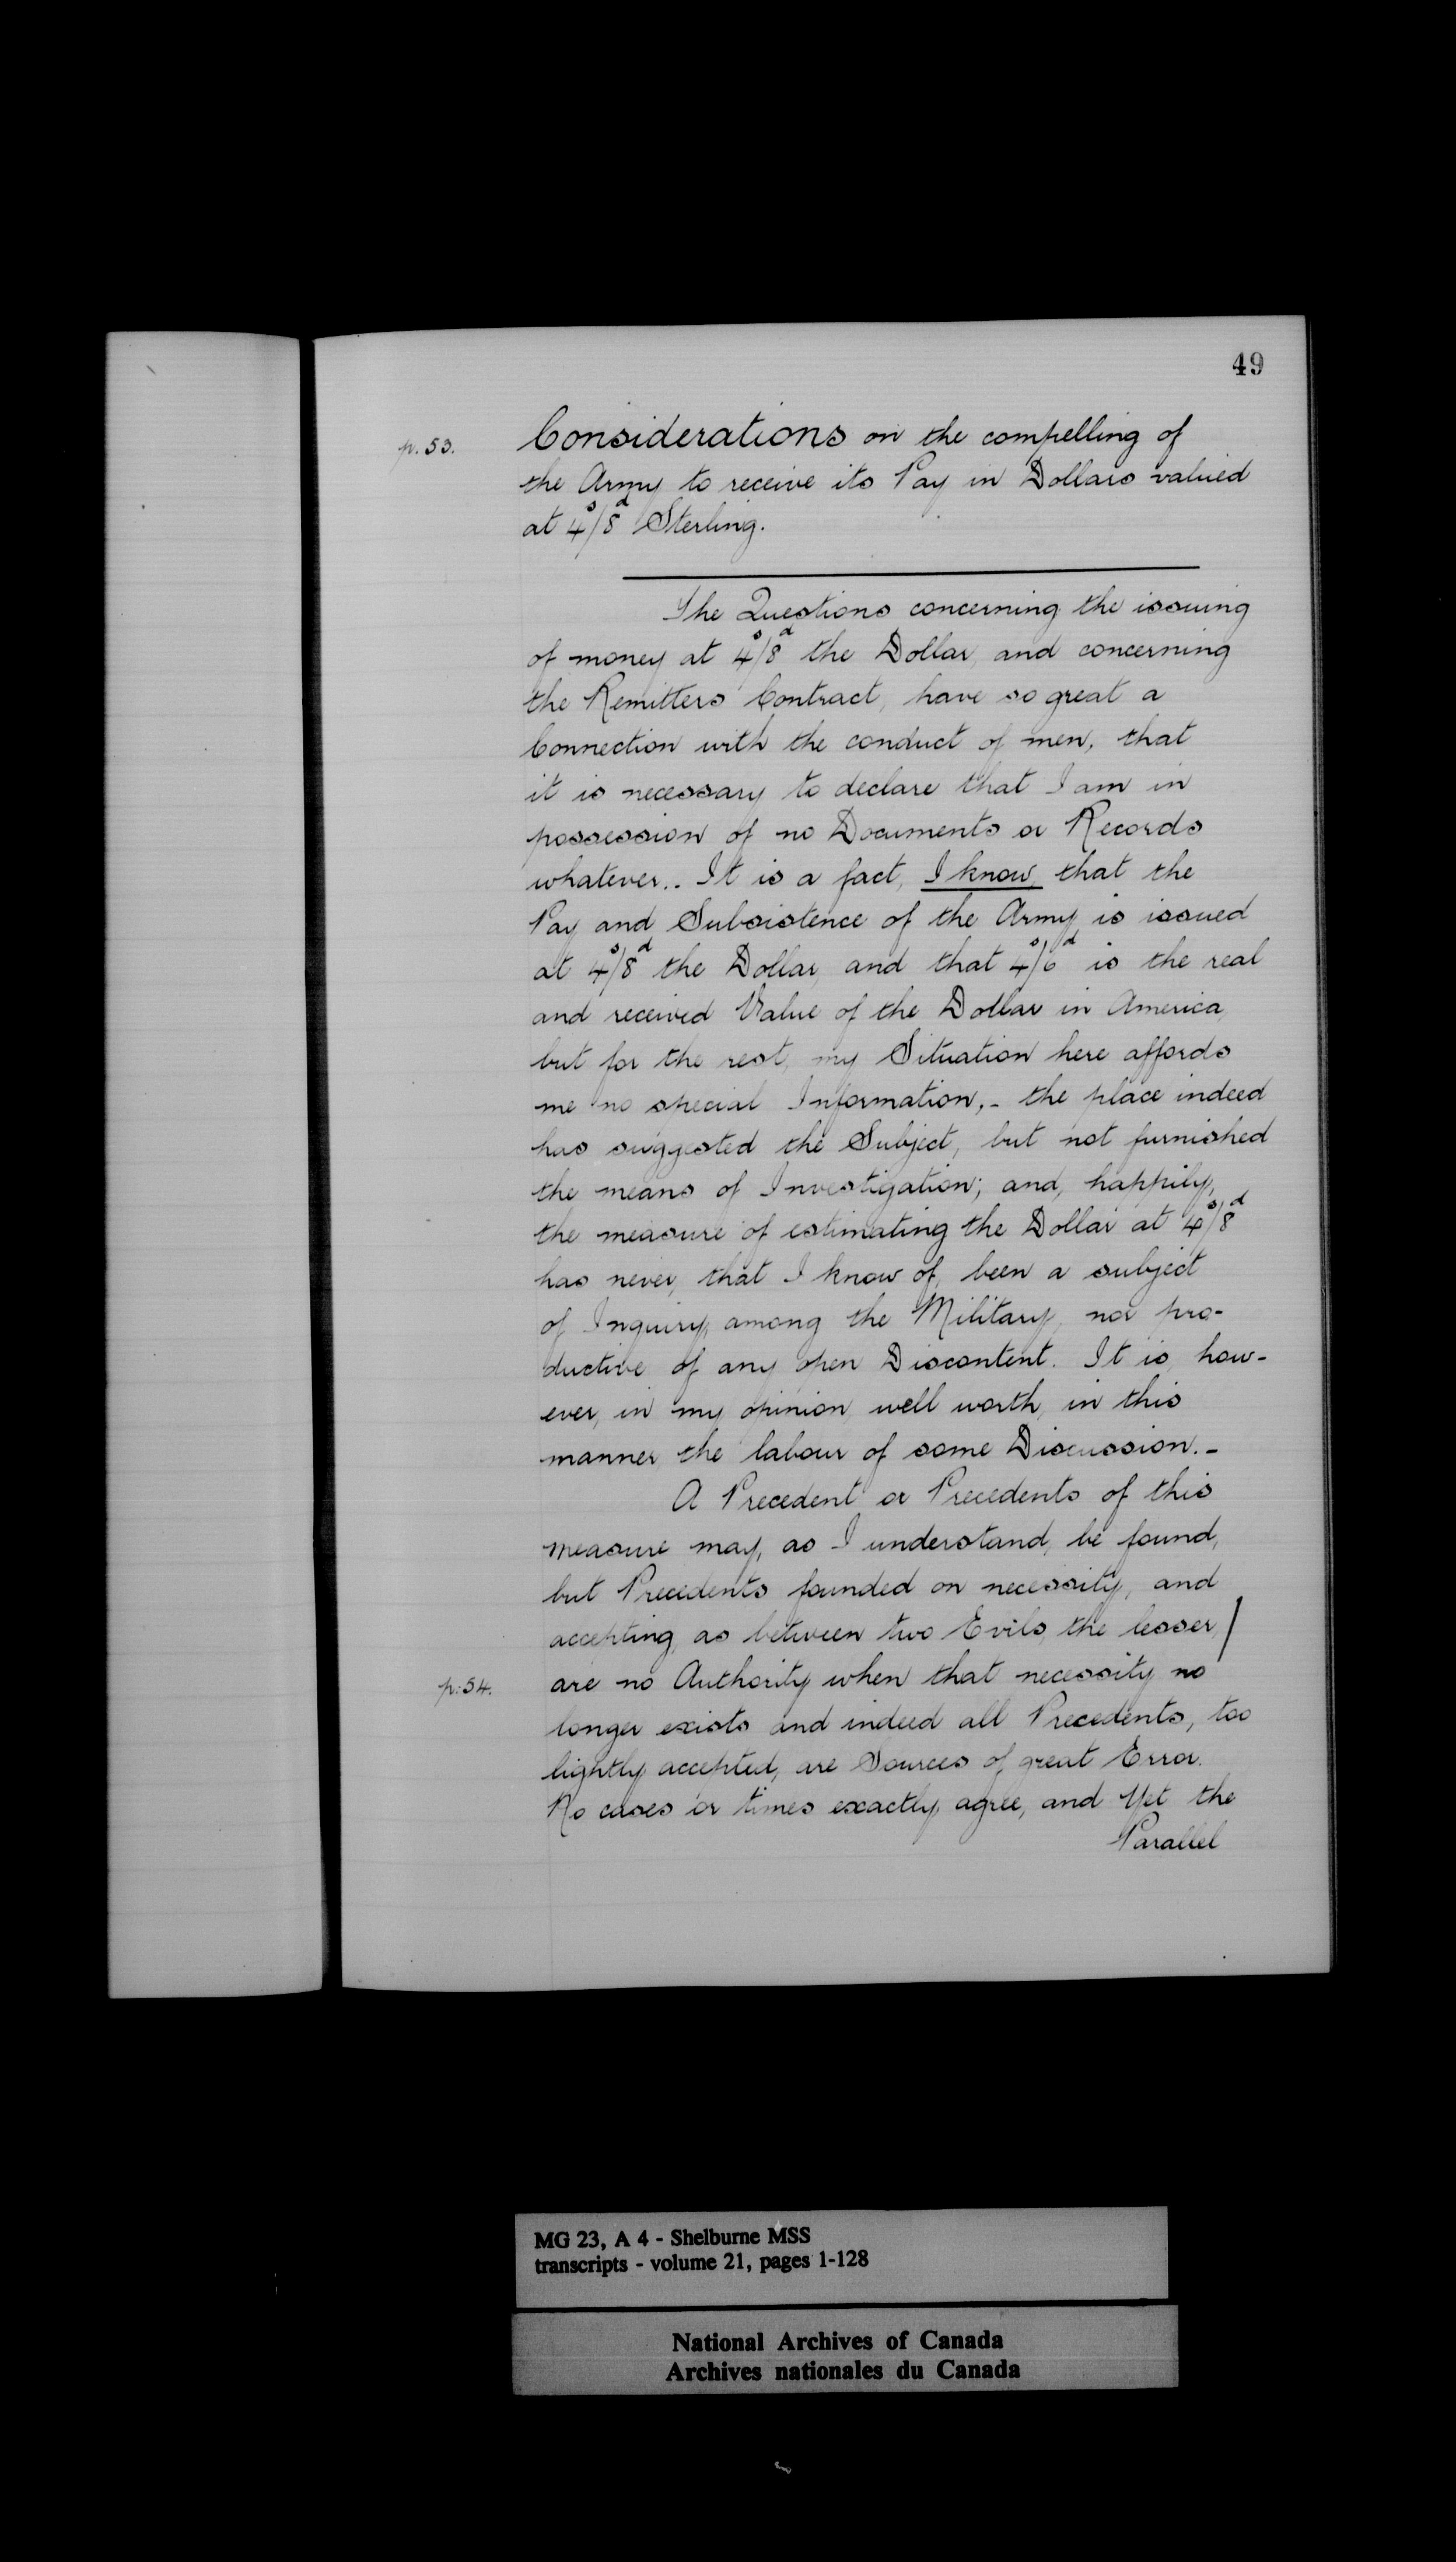 49
p. 53.
Considerations on the compelling of
the Army to receive its Pay in Dollars valued
at 4s/8d Sterling.
The Questions concerning the issuing
of money at 4s/8d the Dollar, and concerning
the Remitters Contract, have so great a
Connection with the conduct of men, that
it is necessary to declare that I am in
possession of no Documents or Records
whatever.. It is a fact, I know, that the
Pay and Subsistence of the Army is issued
at 4s/8d the Dollar, and that 4s/6d is the real
and received Value of the Dollar in America,
but for the rest, my Situation here affords
me no special Information,- the place indeed
has suggested the Subject, but not furnished
the means of Investigation; and, happily,
the measure of estimating the Dollar at 4s/8d
has never, that I know of, been a subject
of Inquiry, among the Military, nor pro-
ductive of any open Discontent. It is, how-
ever, in my opinion well worth, in this
manner, the labour of some Discussion.-
A Precedent or Precedents of this
measure may, as I understand, be found,
but Precedents founded on necessity, and
accepting, as between two Evils, the lesser, /
p: 54.
are no Authority when that necessity no
longer exists and indeed all Precedents, too
lightly accepted, are Sources of great Error.
No cases or times exactly agree, and Yet the
Parallel
MG 23, A 4 - Shelburne MSS
transcripts - volume 21, pages 1-128
National Archives of Canada
Archives nationales du Canada